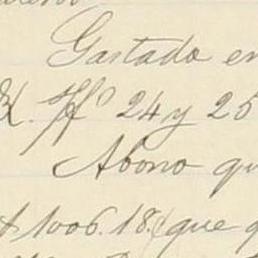 Gastado en
24 y 25
Abono qu
1006.18. (que q